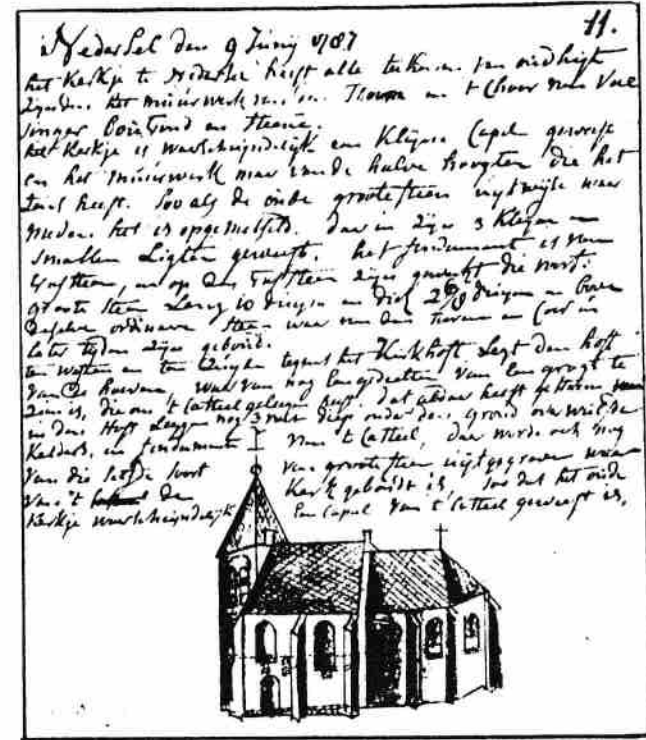 11.
Nedersel den 9 Junij 1787
het Kerkje te Nederse heeft alle teekenen van oudheijt
zijnde het muurwerk van den Thoorn en 't Choor van
en steene.
het Kerkje is waarscheijndelijk een Kleijne Capel geweest
en het muurwerk maar van de halve hoogten die het
heeft. soo als de oude groote steen uijtwijst waar
meede het is opgemetselt. daar in zijn 3 Kleijne en
smallen Ligten geweest. het fondament is van
en op den zijn gewerkt die soort
groote steen Lang 10 duijm en dick 2 duijm en boven
deselve ordinare steen waar van den Thoorn en Coor in
later tijden zijn gebouwt.
ten westen en ten Zuijden tegens het Kerkhoft Legt den hoff
van de hoeven, waar van nog
is, die om 't Casteel geleegen heeft, dat aldaar heeft gestaan
in den Hoff Leggen nog 3 diep onder den grond
Kelders, en fondament van 't Casteel, daar word ook nog
van die selfde soort van groote steen uijtgegraven waar
van 't de Kerk gebouwt is, soo dat het oude
Kerkje waarscheijndelijk een Capel van 't Casteel geweest is,